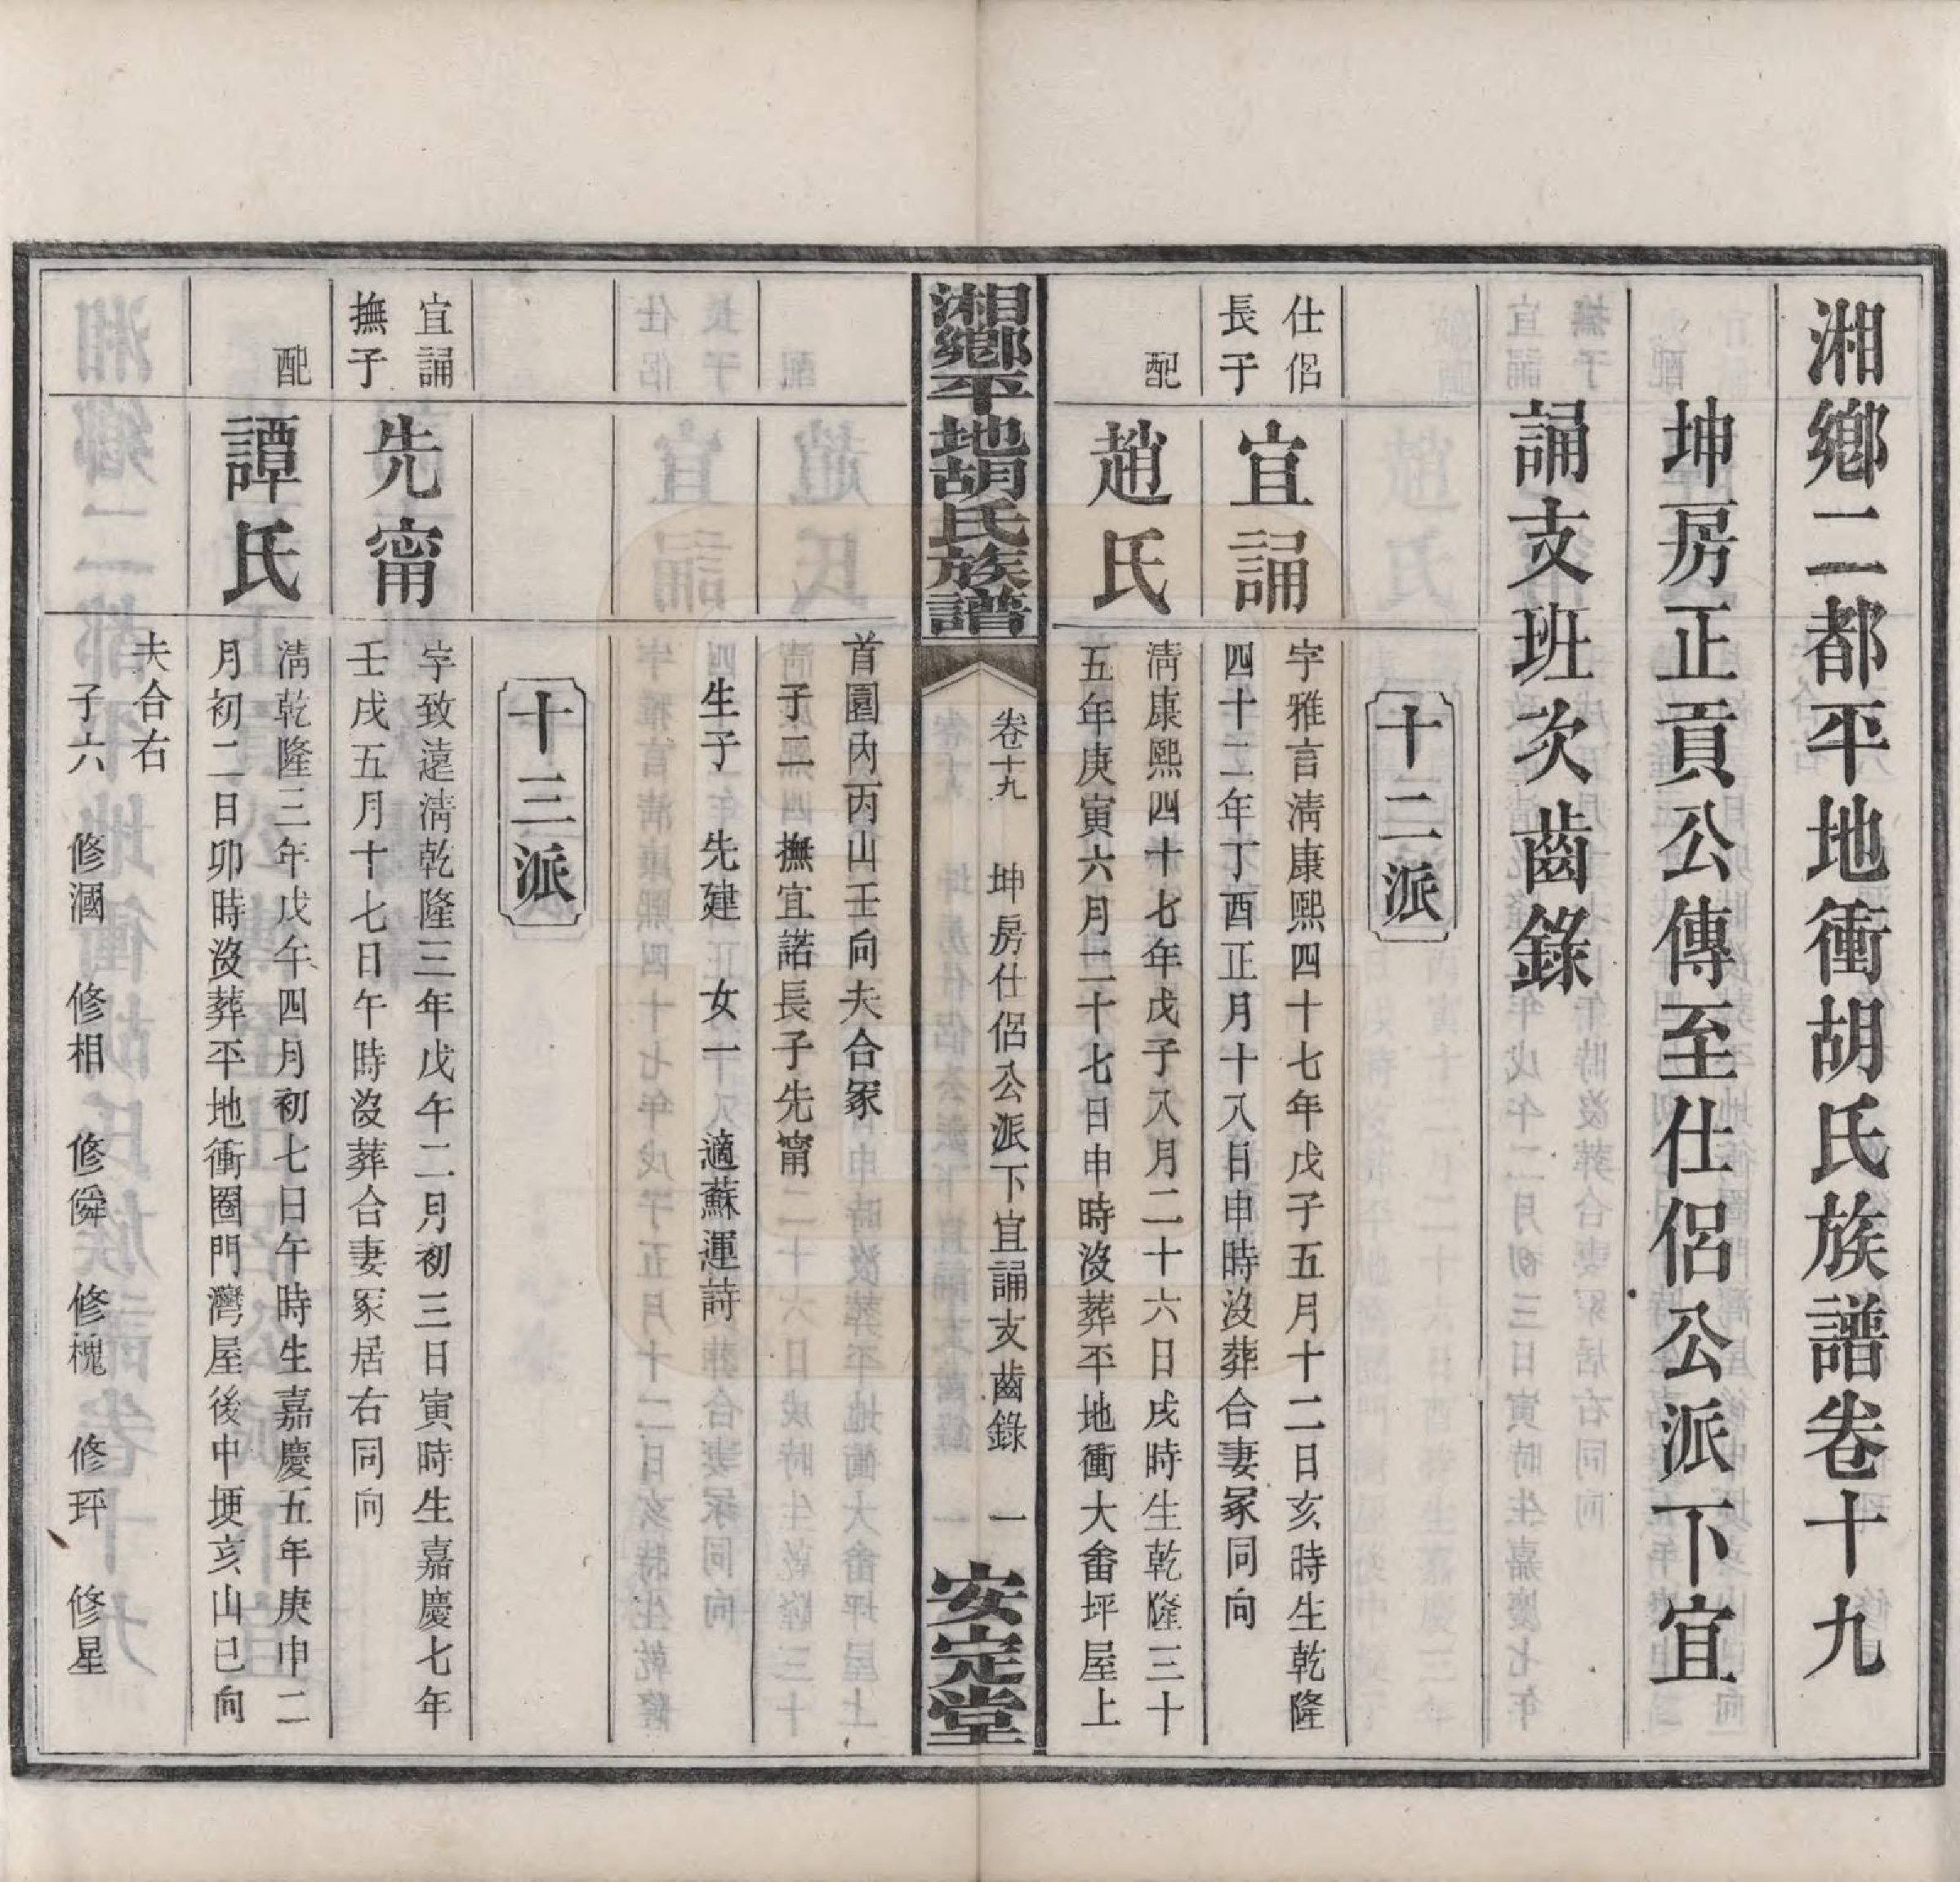 湘鄉二都平地衝胡氏族譜卷十九
坤房正貢公傳至仕侶公派下宜
誦支班次齒錄
十二派
仕侶
長子
宜誦
字雅言淸康熙四十七年戊子五月十二日亥時生乾隆
四十二年丁酉正月十八日申時沒葬合妻冢同向
配
趙氏
淸康熙四十七年戊子八月二十六日戌時生乾隆三十
五年庚寅六月二十七日申時沒葬平地衝大畬坪屋上
湘鄉平地胡氏族譜
卷十九 坤房仕侶公派下宜誦支齒錄 一
安定堂
首園內丙山壬向夫合冢
子二 撫宜諾長子先甯
生子 先建 女一 適蘇運詩
十三派
宜誦
撫子
先甯
字致遠淸乾隆三年戊午二月初三日寅時生嘉慶七年
壬戌五月十七日午時沒葬合妻冢居右同向
配
譚氏
淸乾隆三年戊午四月初七日午時生嘉慶五年庚申二
月初二日卯時沒葬平地衝圈門灣屋後中埂亥山巳向
夫合右
子六 修漍 修相 修舜 修槐 修玶 修星